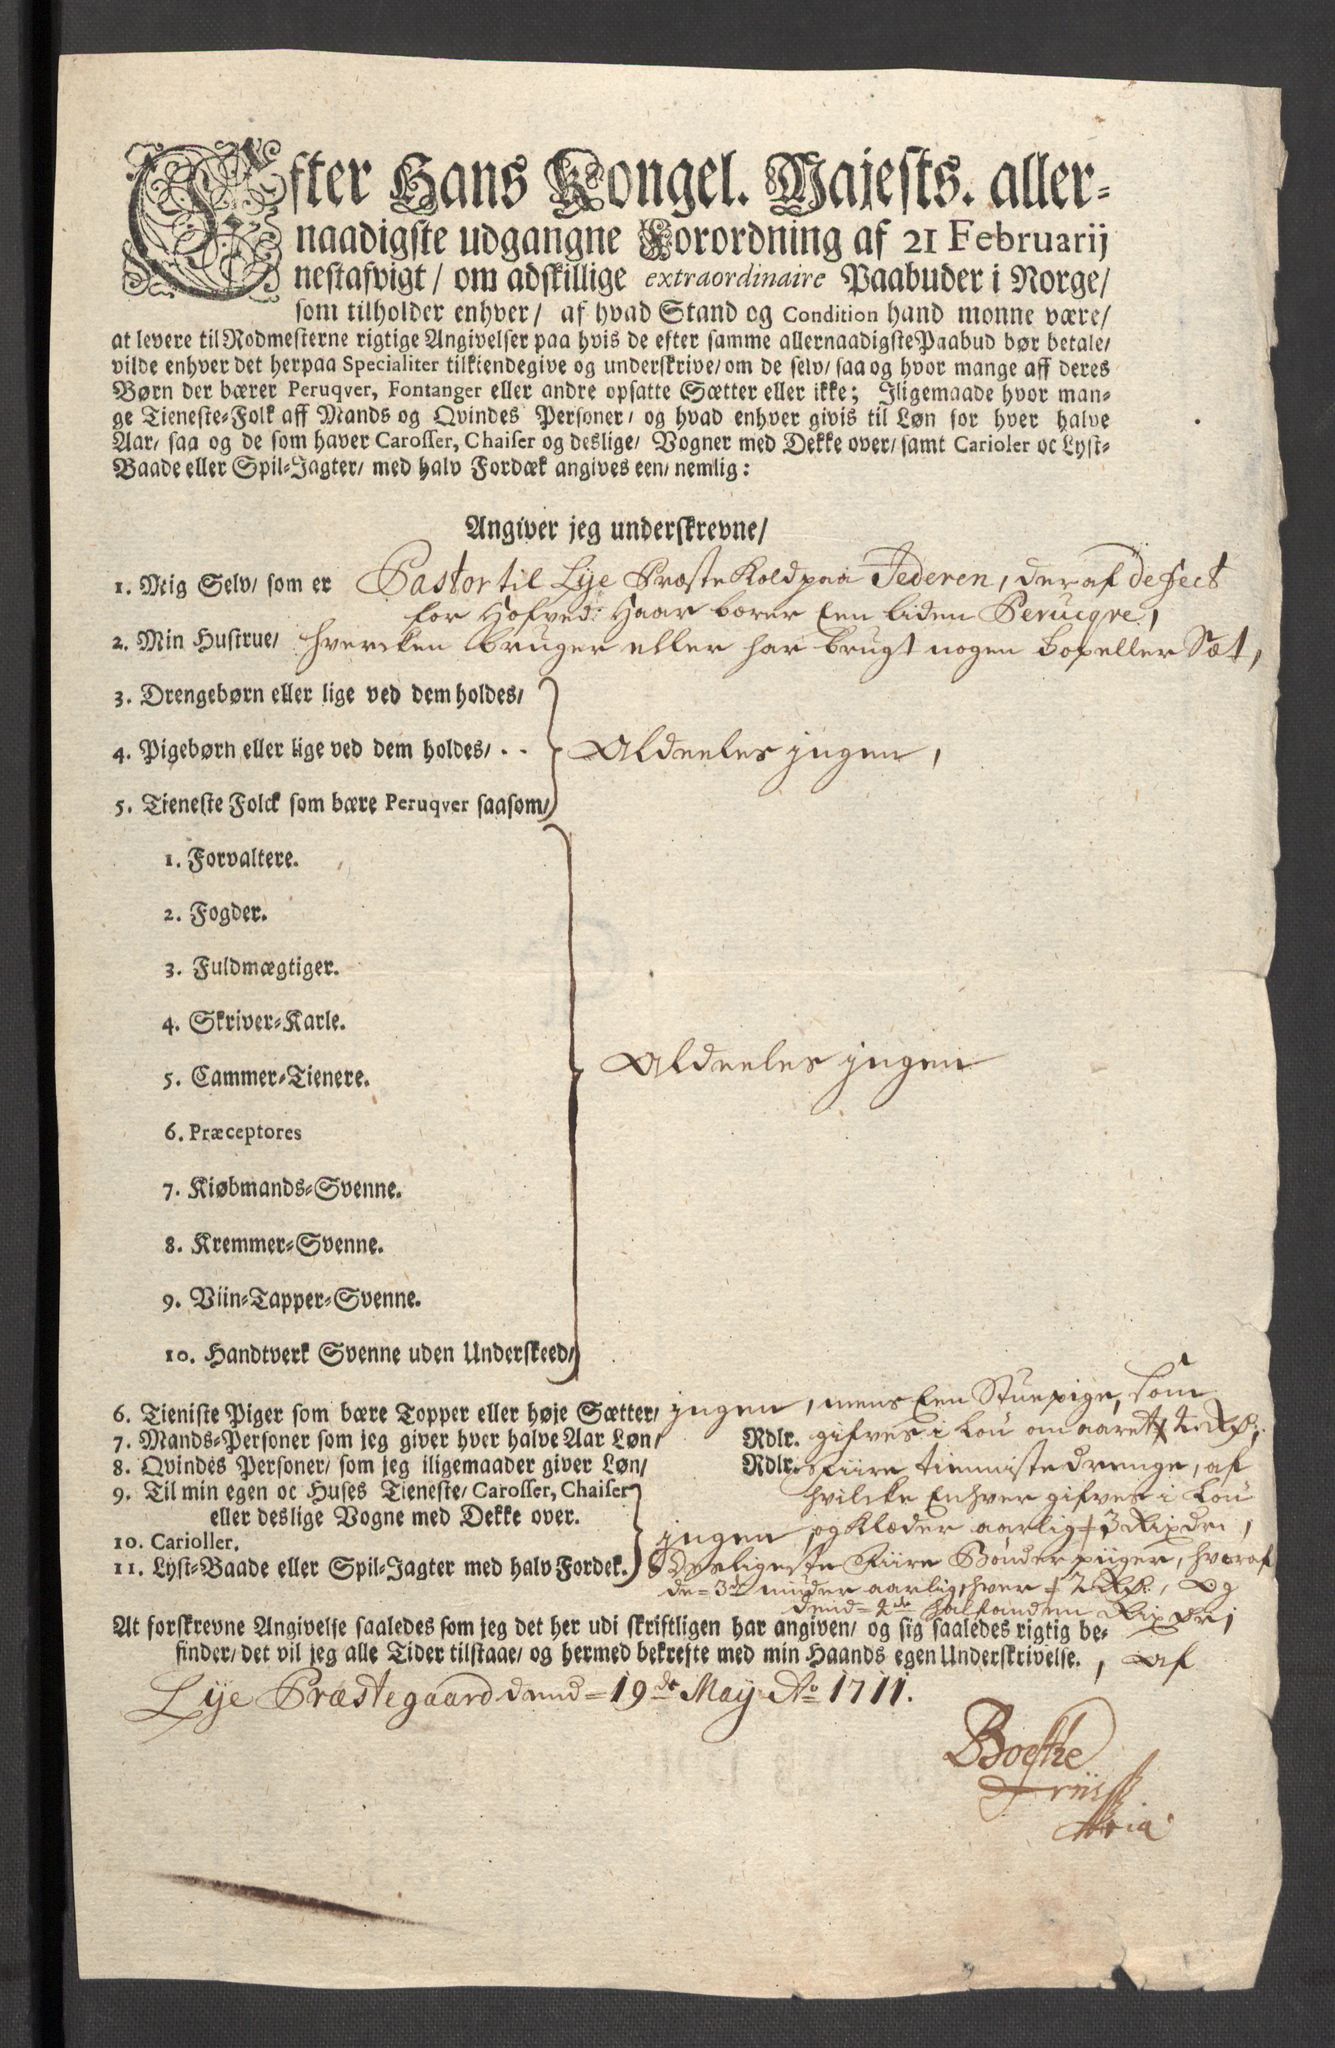 Efter Hans Kongel. Majests. aller-
naadigste udgangne Forordning af 21 Februarij
nestafvigt/ om adskillige extraordinaire Paabuder i Norge/
som tilholder enhver/ af hvad Stand og Condition hand monne være/
at levere til Rodmesterne rigtige Angivelser paa hvis de efter samme allernaadigste Paabud bør betale/
vilde enhver det herpaa Specialiter tilkiendegive og underskrive/ om de selv/ saa og hvor mange aff deres
Børn der bærer Peruqver, Fontanger eller andre opsatte Sætter eller ikke; Iligemaade hvor man-
ge Tieneste-Folk aff Mands og Qvindes Personer/ og hvad enhver givis til Løn for hver halve
Aar/ saa og de som haver Carosser, Chaiser og deslige/ Vogner med Dekke over/ samt Carioler oc Lyst-
Baade eller Spil-Jagter/ med halv Fordæk angives een/ nemlig:
Angiver jeg underskrevne/
1. Mig Selv/ som er Pastor til Lye Præstekold paa Jederen, der af defect
for Hofved: Haar bærer Een liden Perucqve,
2. Min Hustrue/ hvercken bruger eller har brugt nogen Top eller Sæt,
3. Drengebørn eller lige ved dem holdes/
4. Pigebørn eller lige ved dem holdes/ . . Aldeeles jngen,
5. Tieneste Folck som bære Peruqver saasom/
1. Forvaltere.
2. Fogder.
3. Fuldmægtiger.
4. Skriver-Karle.
5. Cammer-Tienere. Aldeeles jngen
6. Præceptores
7. Kiøbmands-Svenne.
8. Kremmer-Svenne.
9. Viin-Tapper-Svenne.
10. Handtverk Svenne uden Underskeed/
6. Tieniste Piger som bære Topper eller høje Sætter/ jngen, mens Een Stuepige, som
7. Mands-Personer som jeg giver hver halve Aar Løn/ Rdlr. gifves i Lön om aaret 2 Rdr.
8. Qvindes Personer/ som jeg iligemaader giver Løn/ Rdlr. Fiire tienniste drenge, af
9. Til min egen oc Huses Tieneste/ Carosser, Chaiser hvilcke Enhver gifves i Lön
eller deslige Vogne med Dekke over.
10. Carioller. jngen og Klæder aarlig 3 Rixdr,
11. Lyst-Baade eller Spil-Jagter med halv Fordek. Desligeste Fiire Bönder piiger, hvoraf
de 3de nyder aarlig hver 2 Rdr., og
dend 4de halfanden Rixdr;
At forskrevne Angivelse saaledes som jeg det her udi skriftligen har angiven/ og sig saaledes rigtig be-
finder/ det vil jeg alle Tider tilstaae/ og hermed bekrefte med min Haands egen Underskrivelse., Af
Lye Præstegaard dend 19de Maij Ao 1711.
Boethe